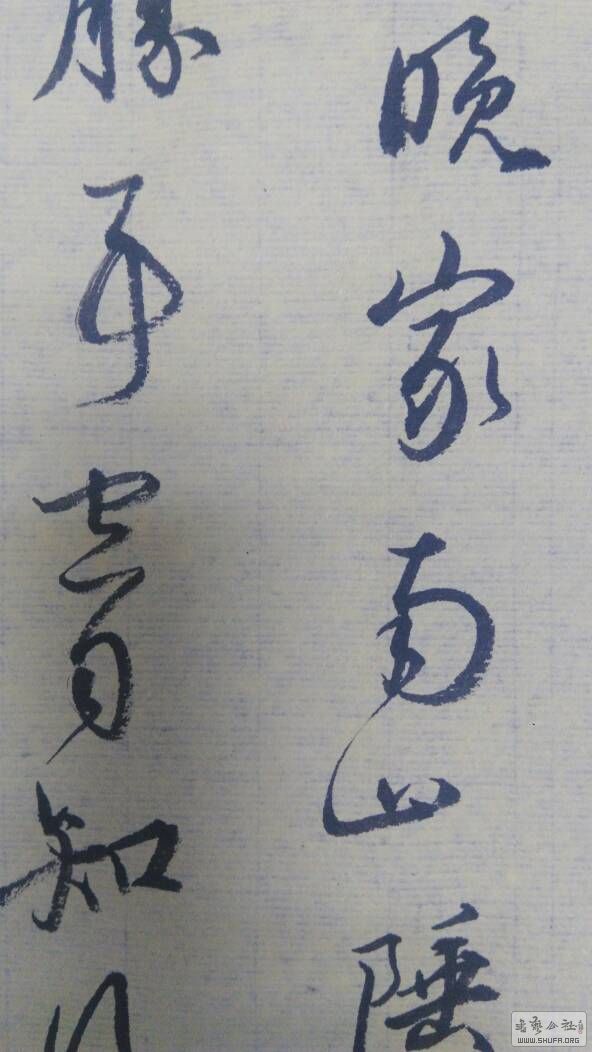 晚家南山陲
勝事空自知行
书艺公社
WWW.SHUFA.ORG